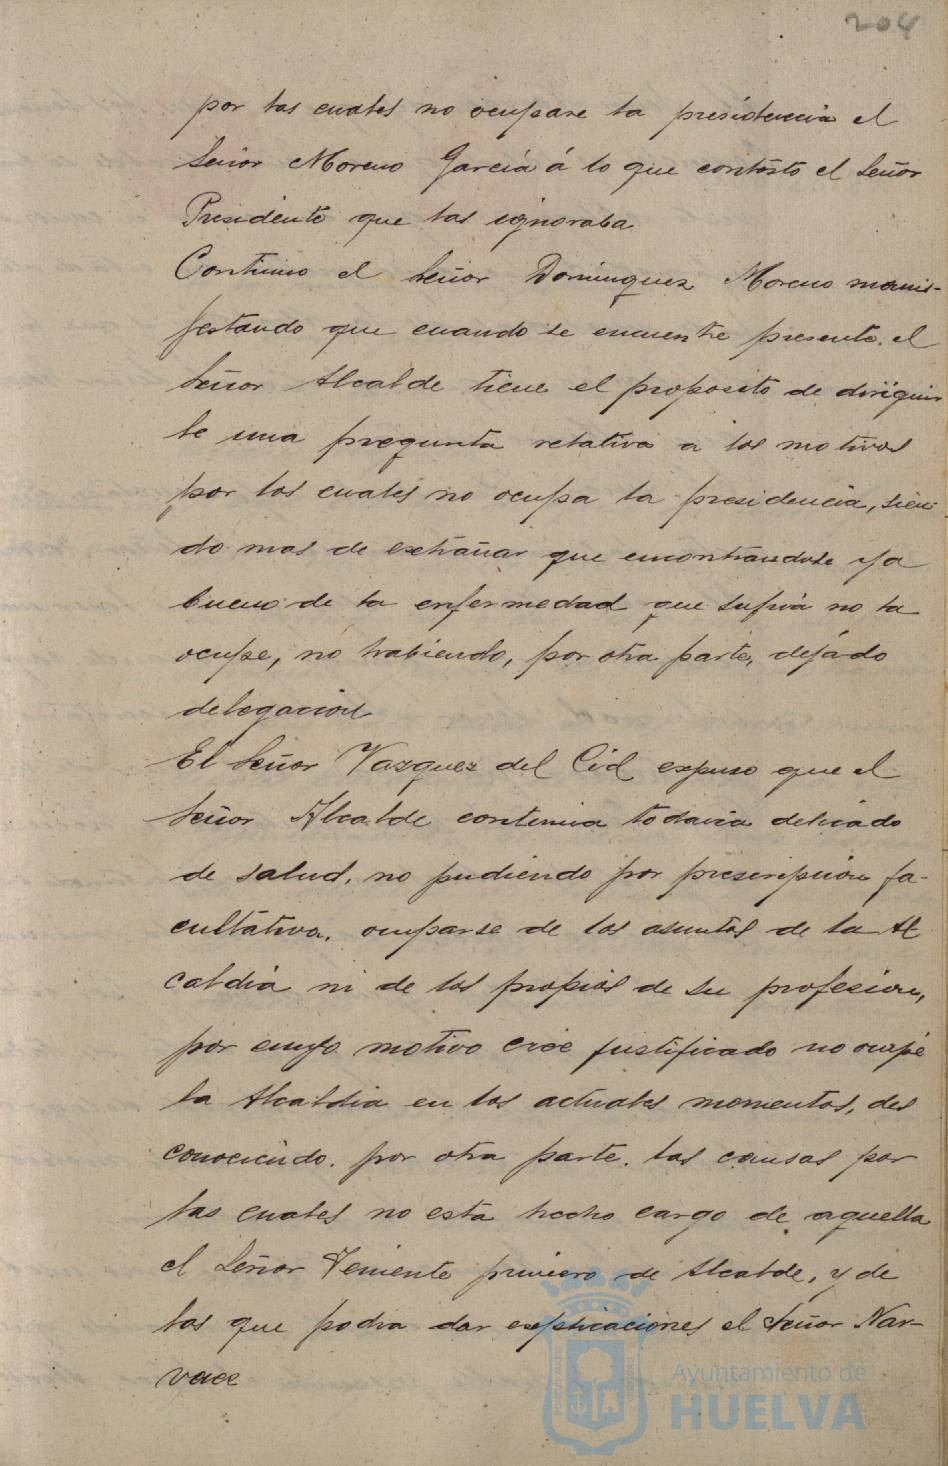 204
por las cuales no ocupare la presidencia el
Señor Moreno García á lo que contestó el Señor
Presidente que las ignoraba
Continuo el Señor Dominguez Moreno manis-
festando que cuando se encuentre presente. el
Señor Alcalde tiene el proposito de dirigir
le una pregunta relativa a los motivos
por los cuales no ocupa la presidencia, sien-
do mas de extrañar que encontrandose ya
bueno de la enfermedad que sufria no la
ocupe, no habiendo, por otra parte, dejado
delegacion
El Señor Vazquez del Cid expuso que el
Señor Alcalde continua todavia delicado
de salud, no pudiendo por prescripcion fa-
cultativa, ocuparse de los asuntos de la Al
caldia ni de los propios de su profesion,
por cuyo motivo cree justificado no ocupe
la Alcaldia en los actuales momentos, des
conociendo. por otra parte. las causas por
las cuales no esta hecho cargo de aquella
el Señor Teniente primero de Alcalde, y de
las que podra dar explicaciones el Señor Nar-
vaez
Ayuntamiento de
HUELVA